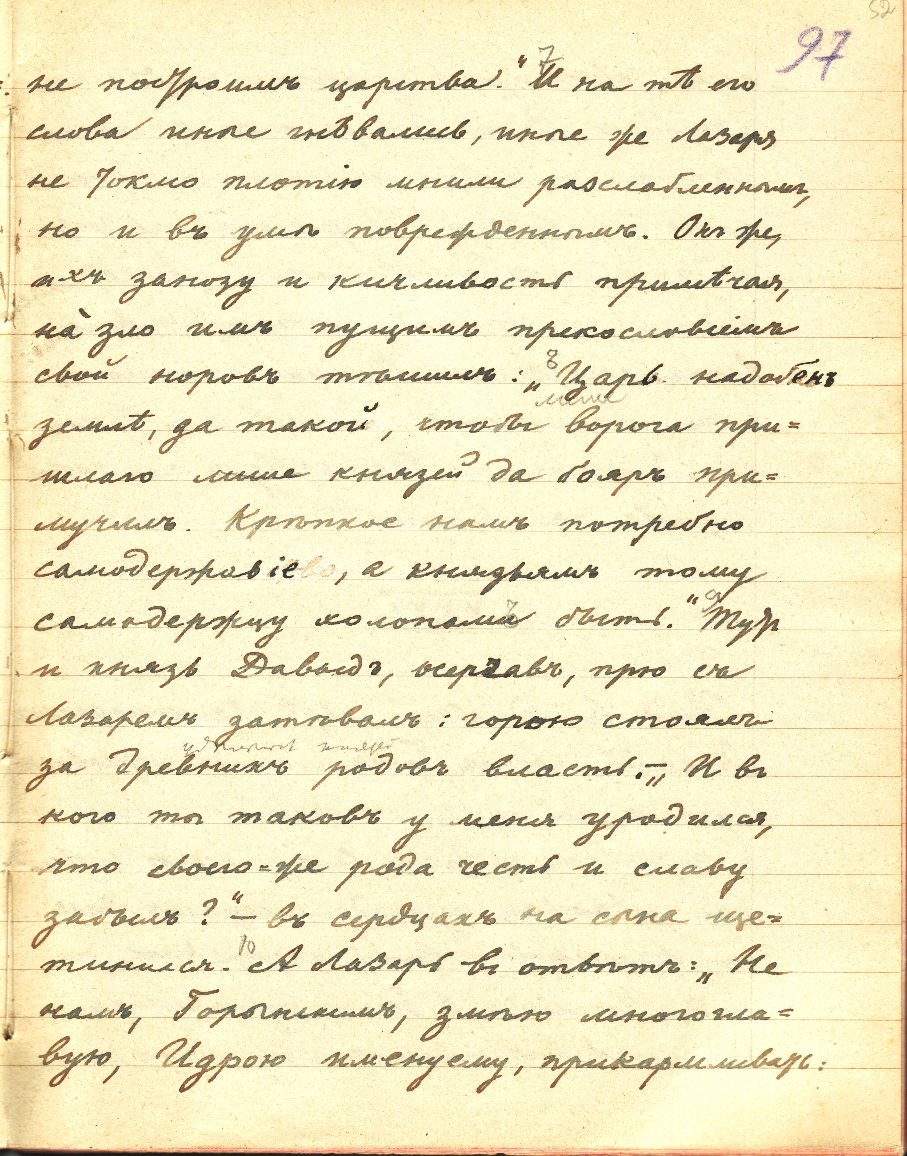 52
97
не построимъ царства." 7 И на тѣ его
слова иные гнѣвались, иные же Лазаря
не токмо плотію мнили разслабленнымъ,
но и въ умѣ поврежденнымъ. Онъ же,
ихъ занозу и кичливость примѣчая,
на зло имъ пущимъ прекословіемъ
свой норовъ тѣшилъ: 8 „Царь надобенъ
лише
землѣ, да такой, чтобы ворога при=
шлаго лише князей да бояръ при=
мучилъ. Крѣпкое намъ потребно
самодержавіе, а князьямъ тому
самодержцу холопами быть." 9 Тутъ
и князь Давыдъ, осерчавъ, прю съ
Лазаремъ затѣвалъ: горою стоялъ
удѣльныхъ князей
за древнихъ родовъ власть. — „И въ
кого ты таковъ у меня уродился,
что своего-же рода честь и славу
забылъ?" — въ сердцахъ на сына ще=
тинился. 10 А Лазарь въ отвѣтъ: „Не
намъ, Горынскимъ, змѣю многогла=
вую, Идрою именуему, прикармливать: